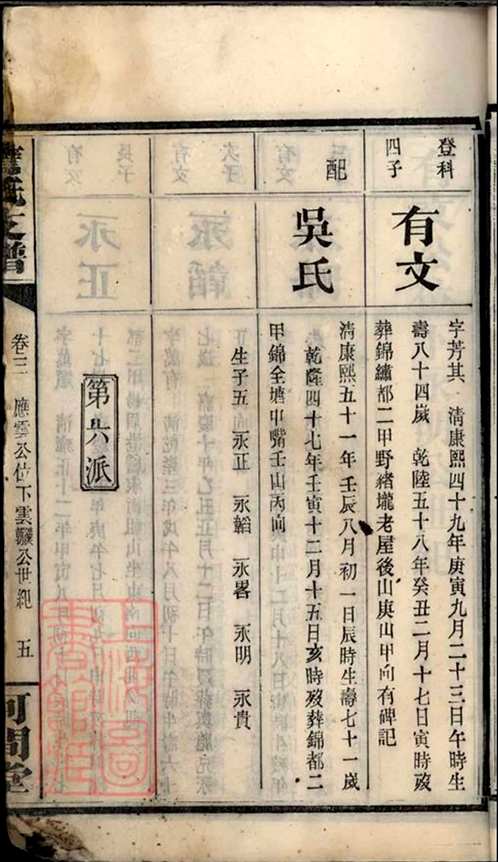 登科
四子
有文
字芳其 清康熙四十九年庚寅九月二十三日午時生
壽八十四歲 乾隆五十八年癸丑二月十七日寅時歿
葬錦繡都二甲野緒壠老屋後山庚山甲向有碑記
配
吳氏
清康熙五十一年壬辰八月初一日辰時生壽七十一歲
乾隆四十七年壬寅十二月十五日亥時歿葬錦都二
甲錦全塘中嘴壬山丙向
生子五 永正 永韜 永畧 永明 永貴
第六派
氏支譜
卷三 應雲公位下雲驥公世紀 五
河間堂